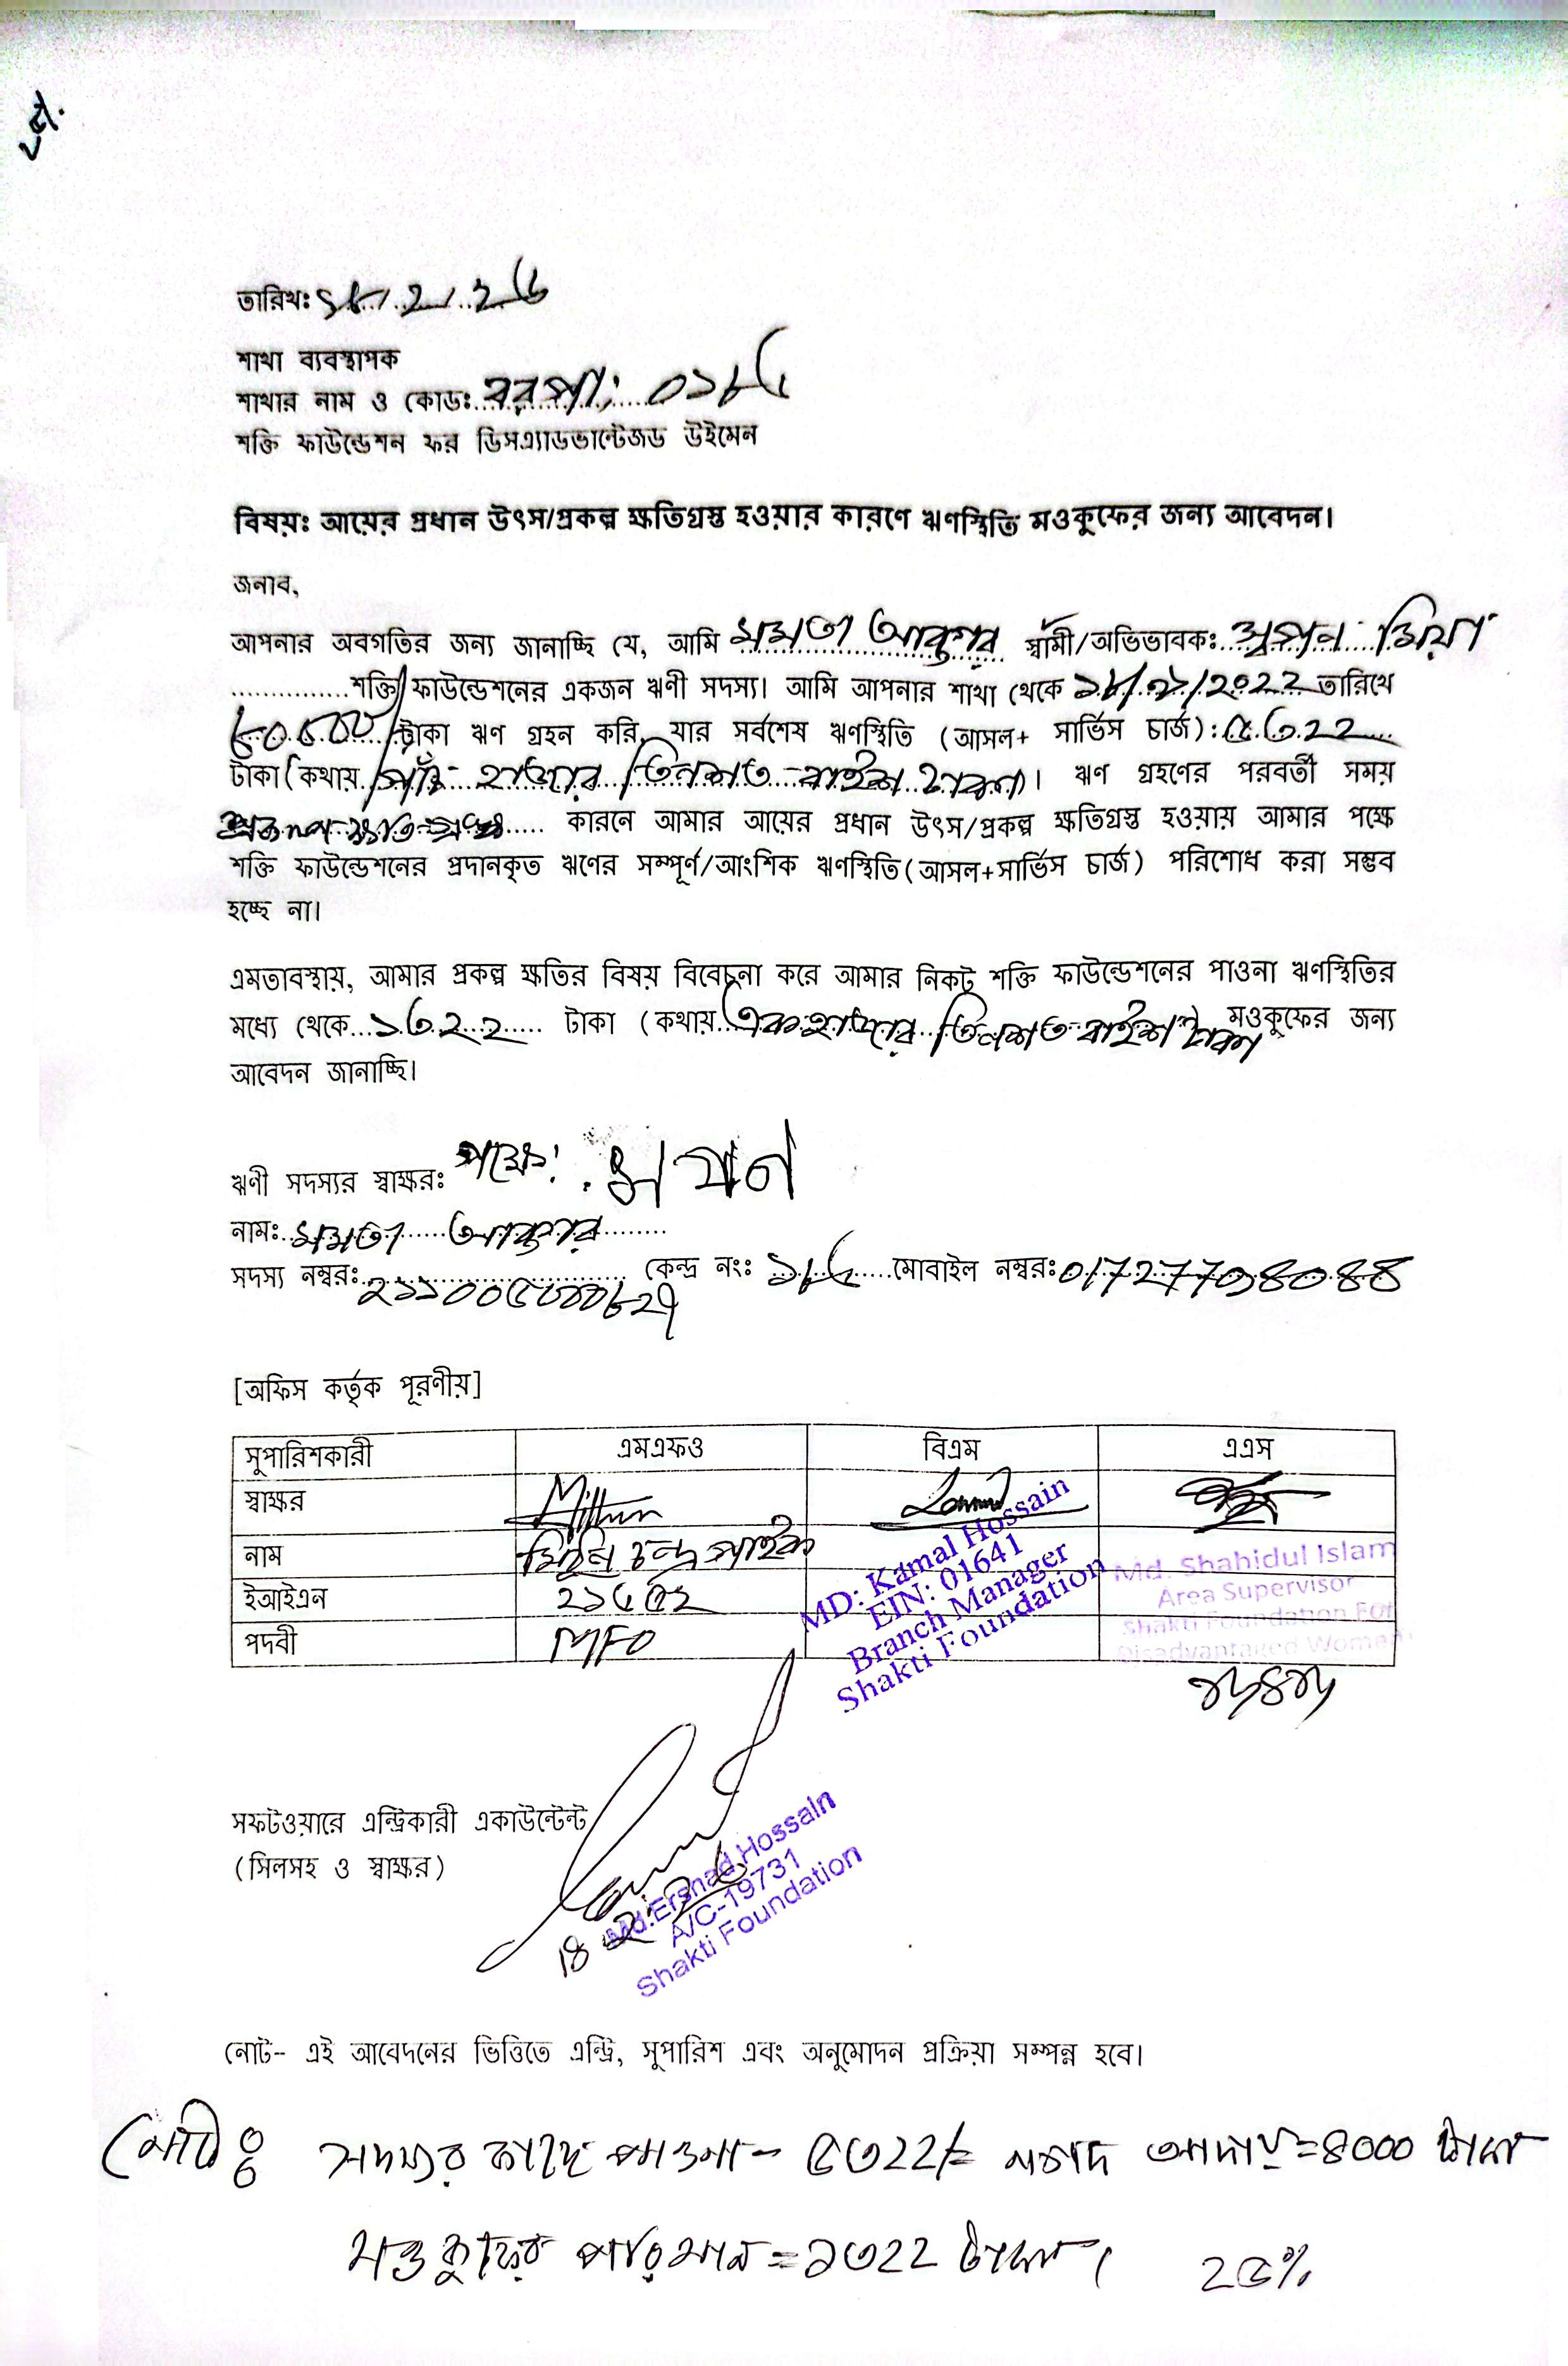 তারিখঃ ১৮/২/২৬
শাখা ব্যবস্থাপক
শাখার নাম ও কোডঃ বরপা; ০১৮৫
শক্তি ফাউন্ডেশন ফর ডিসএ্যাডভান্টেজড উইমেন
বিষয়ঃ আয়ের প্রধান উৎস/প্রকল্প ক্ষতিগ্রস্ত হওয়ার কারণে ঋণস্থিতি মওকুফের জন্য আবেদন।
জনাব,
আপনার অবগতির জন্য জানাচ্ছি যে, আমি মমতা আক্তার স্বামী/অভিভাবকঃ স্বপন মিয়া
শক্তি ফাউন্ডেশনের একজন ঋণী সদস্য। আমি আপনার শাখা থেকে ১৮/০৯/২০২২ তারিখে
টাকা ঋণ গ্রহন করি, যার সর্বশেষ ঋণস্থিতি (আসল+ সার্ভিস চার্জ): ৫৩২২
টাকা (কথায় পাঁচ হাজার তিনশত বাইশ টাকা)। ঋণ গ্রহণের পরবর্তী সময়
প্রকল্প ক্ষতিগ্রস্থ কারনে আমার আয়ের প্রধান উৎস/প্রকল্প ক্ষতিগ্রস্ত হওয়ায় আমার পক্ষে
শক্তি ফাউন্ডেশনের প্রদানকৃত ঋণের সম্পূর্ণ/আংশিক ঋণস্থিতি(আসল+সার্ভিস চার্জ) পরিশোধ করা সম্ভব
হচ্ছে না।
এমতাবস্থায়, আমার প্রকল্প ক্ষতির বিষয় বিবেচনা করে আমার নিকট শক্তি ফাউন্ডেশনের পাওনা ঋণস্থিতির
মধ্যে থেকে ১৩২২ টাকা (কথায় একহাজার তিনশত বাইশ টাকা) মওকুফের জন্য
আবেদন জানাচ্ছি।
ঋণী সদস্যর স্বাক্ষরঃ পক্ষে:
নামঃ মমতা আক্তার
সদস্য নম্বরঃ কেন্দ্র নংঃ ১৮৫ মোবাইল নম্বরঃ
[অফিস কর্তৃক পূরণীয়]
সুপারিশকারী এমএফও বিএম এএস
স্বাক্ষর
নাম মিঠুন চন্দ্র পাইক
ইআইএন
পদবী MFO
MD: Kamal Hossain
EIN: 01641
Branch Manager
Shakti Foundation
Md. Shahidul Islam
Area Supervisor
Shakti Foundation For
Disadvantaged Women
সফটওয়ারে এন্ট্রিকারী একাউন্টেন্ট
(সিলসহ ও স্বাক্ষর)
Md. Ershad Hossain
A/C-19731
Shakti Foundation
নোট- এই আবেদনের ভিত্তিতে এন্ট্রি, সুপারিশ এবং অনুমোদন প্রক্রিয়া সম্পন্ন হবে।
নোট ঃ সদস্যর কাছে পাওনা - ৫৩২২/= নগদ আদায় = ৪০০০ টাকা
মওকুফের পরিমান = ১৩২২ টাকা। ২৫%